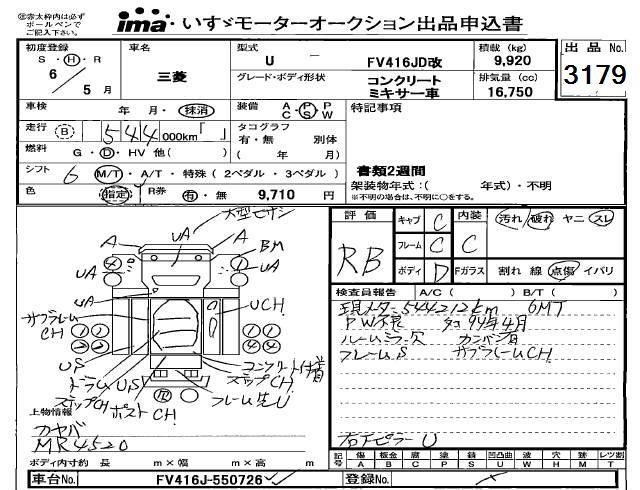 ㊟赤太枠内は必ず
ボールペンで
ご記入下さい。
ima いすゞモーターオークション出品申込書
初度登録 S・H・R 6 / 5 月
車名 三菱
型式 U - FV416JD改
グレード・ボディ形状 コンクリート
ミキサー車
積載 (kg) 9,920
排気量 (cc) 16,750
出品 No. 3179
車検 年 月・抹消
装備 A C・P S・P W
特記事項
走行 B 544 000km「 」
タコグラフ 有・無 別体
( 年 月)
燃料 G・D・HV 他( )
シフト 6 M/T・A/T・特殊 ( 2ペダル・3ペダル )
書類2週間
架装物年式:( 年式)・不明
※不明の場合は、不明に○をする。
色 指定 R券 有・無 9,710 円
評価 RB
キャブ C
フレーム C
ボディ D
内装 C
汚れ 破れ ヤニ スレ
Fガラス 割れ 線 点傷 イバリ
検査員報告 A/C ( ) B/T ( )
現メーター 544212km 6MT
PW不良 タコ 94年4月
ルームミラー欠 カンバン有
フレームS サブフレームCH
右チピラー U
大型バンパン
UA
A
A
BM
4
1
UA
UA
UA
サブフレームCH
UCH
US
ドラムUS
ステップCH ポスト CH
コンクリート付着
ステップCH
フレーム先U
上物情報
カヤバ
MR4520
ボディ内寸約 長 m×幅 m×高 m
記号 傷 A 板金 B 腐 C 塗 P 錆 S 凹凸曲 U 波 W 穴 H 跡 M レツ割 T
車台No. FV416J-550726
登録No.